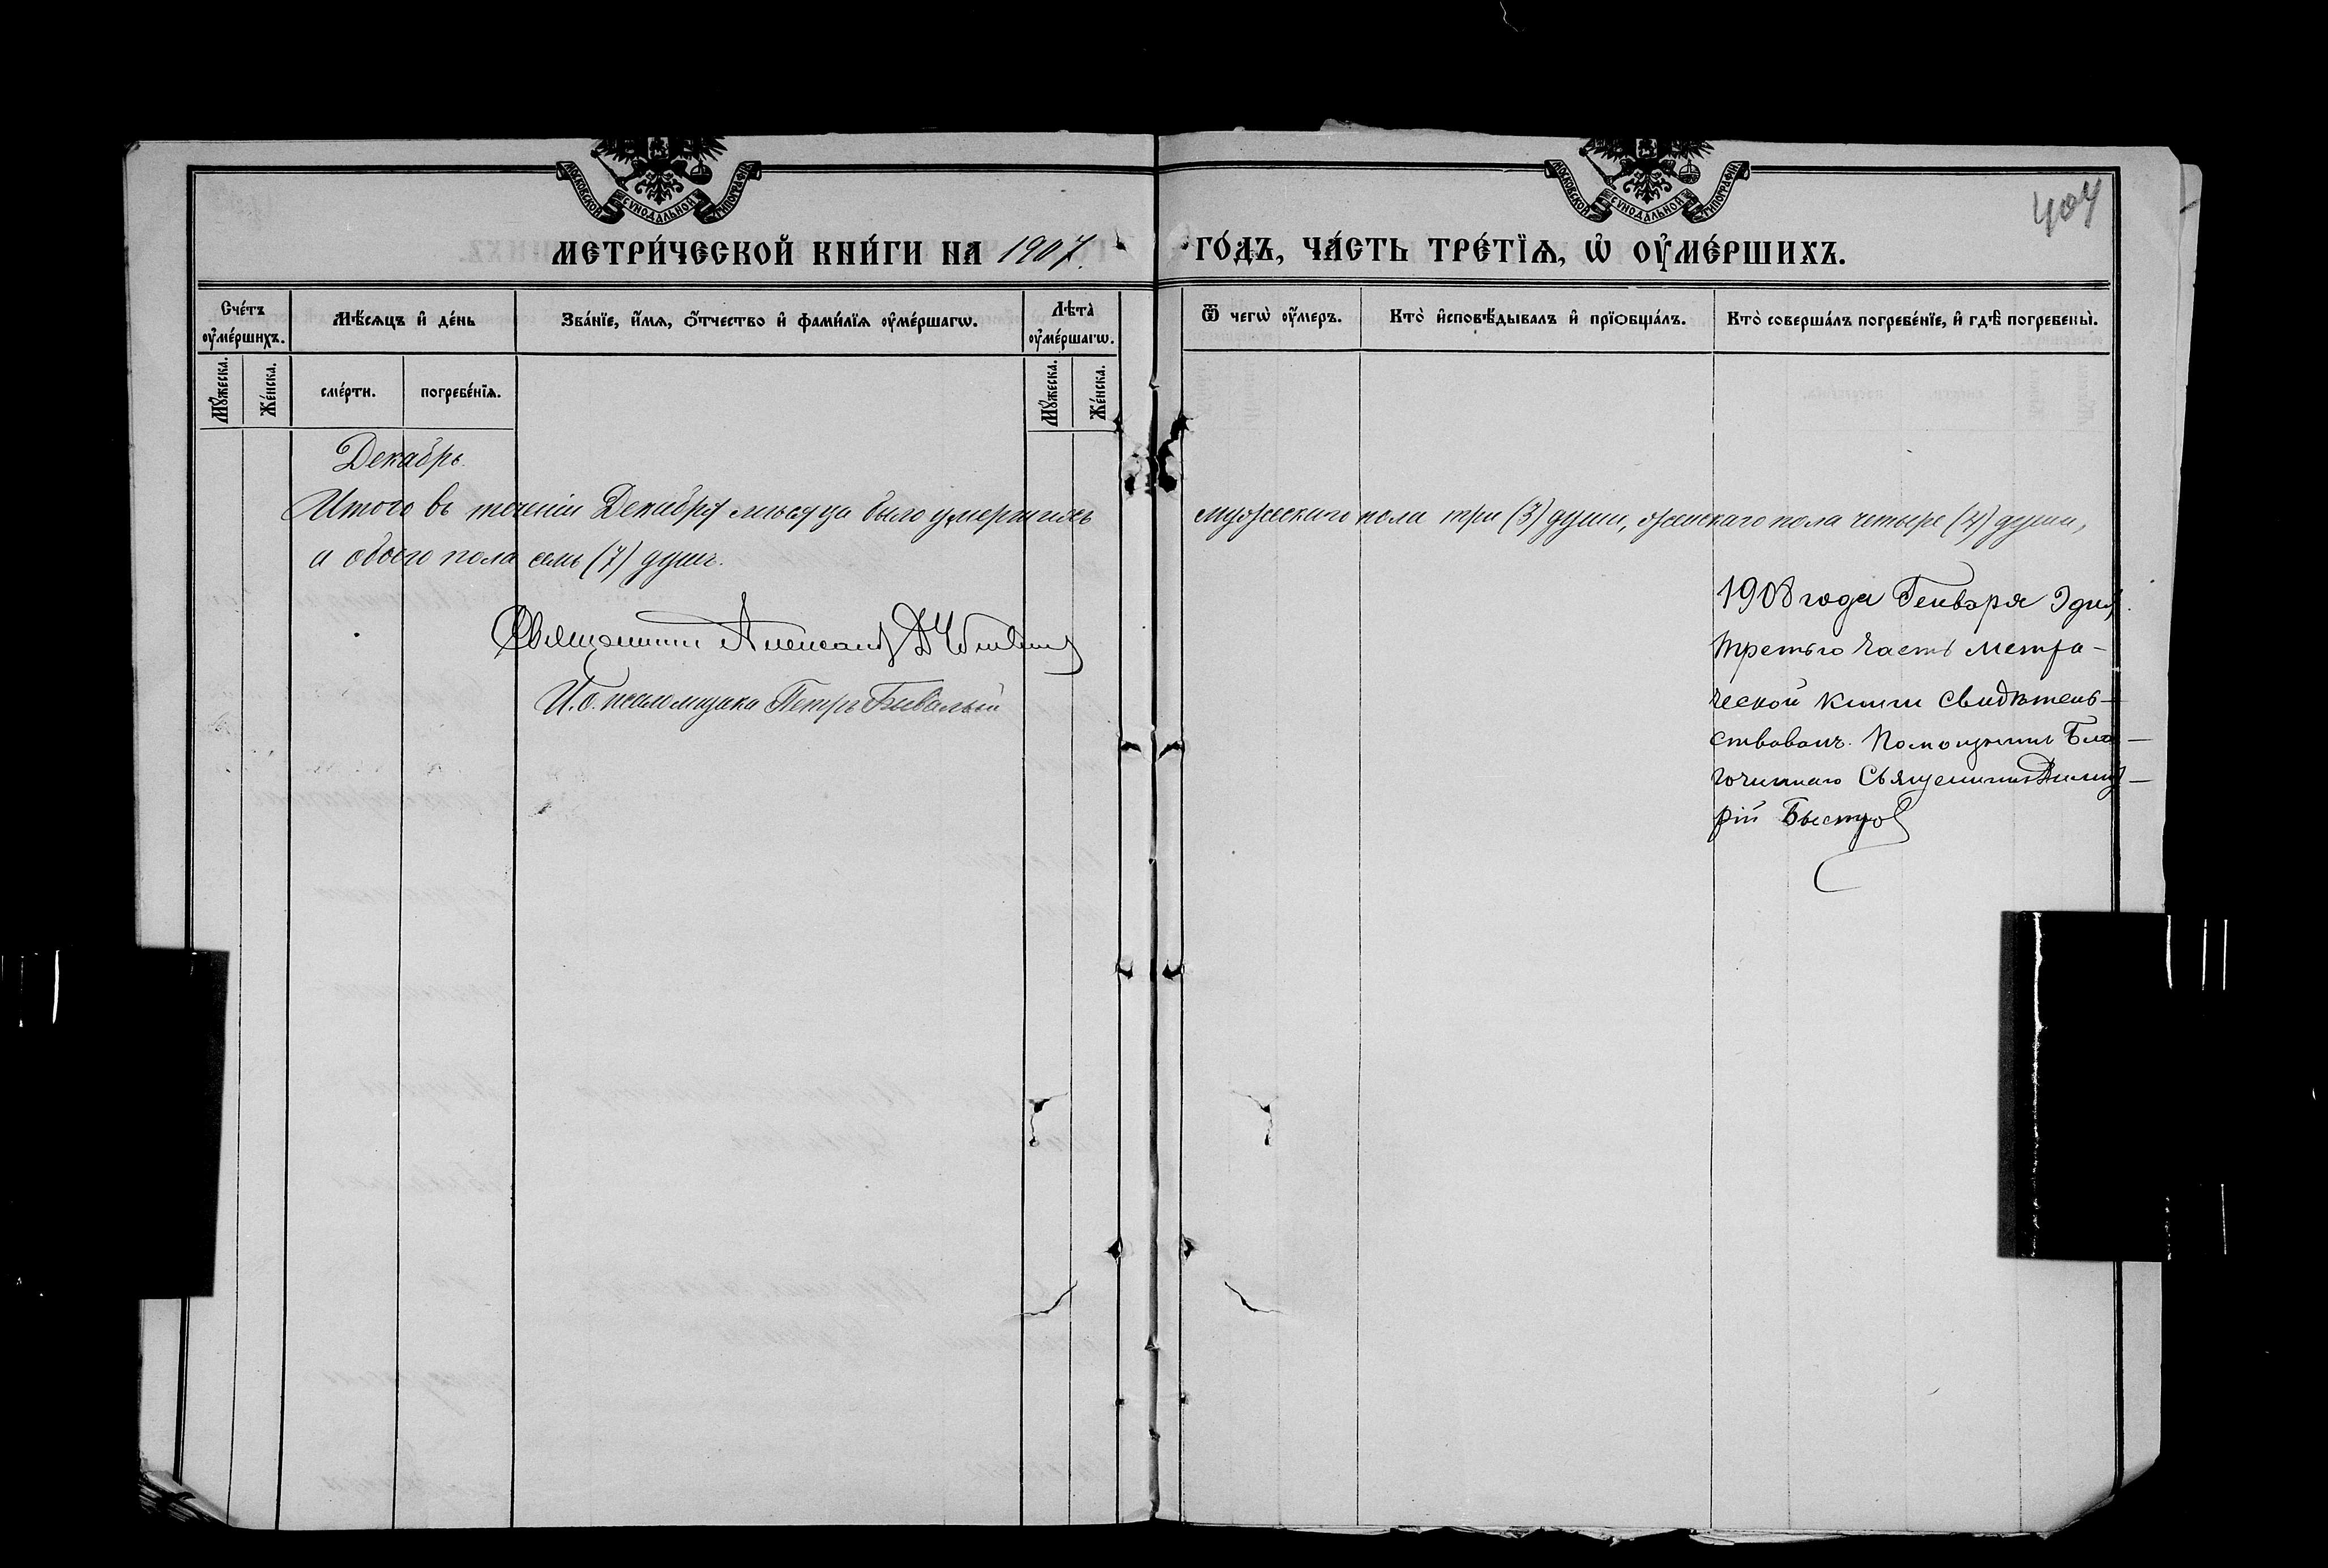 МОСКОВСКОЙ СѴНОДАЛЬНОЙ ТИПОГРАФІИ
МОСКОВСКОЙ СѴНОДАЛЬНОЙ ТИПОГРАФІИ
404
МЕТРИ́ЧЕСКОЙ КНИ́ГИ НА 1907. ГО́ДЪ, ЧА́СТЬ ТРЕ́ТЇѦ, Ѡ҆ ОУ҆МЕ́РШИХЪ.
Сче́тъ оу҆ме́ршихъ.
Мѣ́сѧцъ и҆ де́нь
Зва́нїе, и҆́мѧ, ѻ҆́тчество и҆ фами́лїѧ оу҆ме́ршагѡ.
Лѣта̀ оу҆ме́ршагѡ.
Ѿ чегѡ̀ оу҆́меръ.
Кто̀ и҆сповѣ́дывалъ и҆ прїѻбща́лъ.
Кто̀ соверша́лъ погребе́нїе, и҆ гдѣ̀ погребены̀.
Мꙋ́жеска.
Же́нска.
сме́рти.
погребе́нїѧ.
Мꙋ́жеска.
Же́нска.
Декабрь.
Итого въ теченіи Декабря мѣсяца было умершихъ мужескаго пола три (3) души, женскаго пола четыре (4) души,
а обоего пола семь (7) душъ.
Священникъ
И. о. псаломщика Петръ Бывалый
1908 года Генваря 9 дня
третью часть метри-
ческой книги свидѣтель-
ствовалъ. Помощникъ Бла-
гочиннаго Священникъ Димит-
рій Быстров